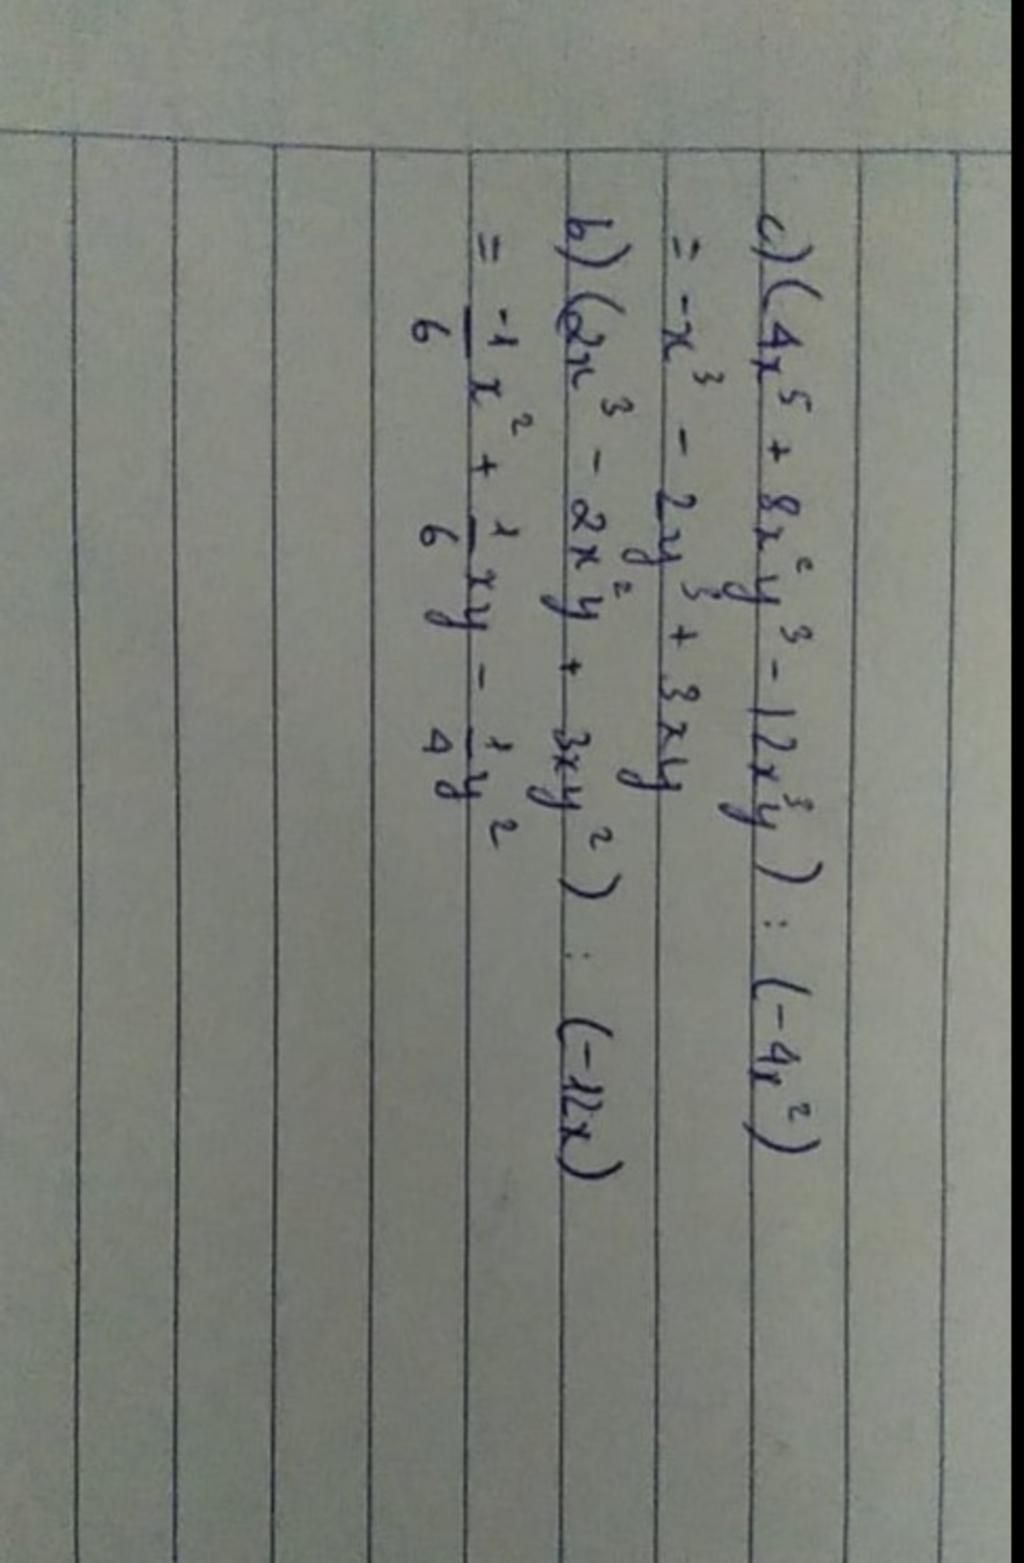 c) (4x⁵ + 8x²y³ - 12x³y) : (-4x²)
= -x³ - 2y³ + 3xy
b) (2x³ - 2x²y + 3xy²) : (-12x)
= -1/6 x² + 1/6 xy - 1/4 y²